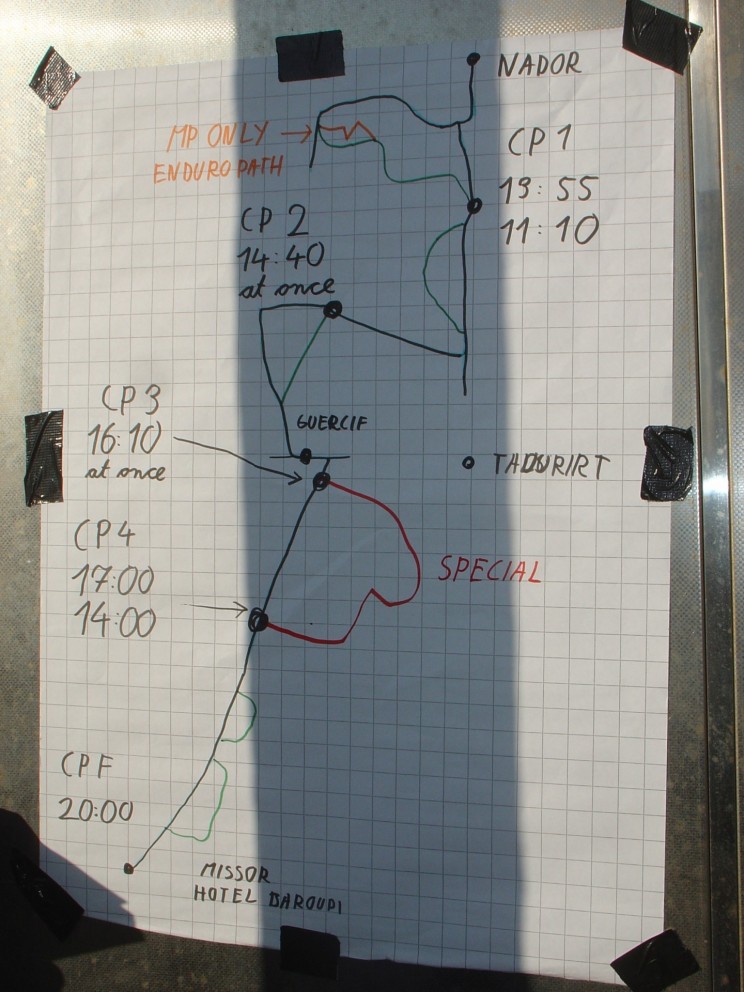 NADOR
MP ONLY
ENDURO PATH
CP 1
19:55
11:10
CP 2
14:40
at once
CP 3
16:10
at once
GUERCIF
TAOURIRT
CP4
17:00
14:00
SPECIAL
CP F
20:00
MISSOR
HOTEL BAROUPI